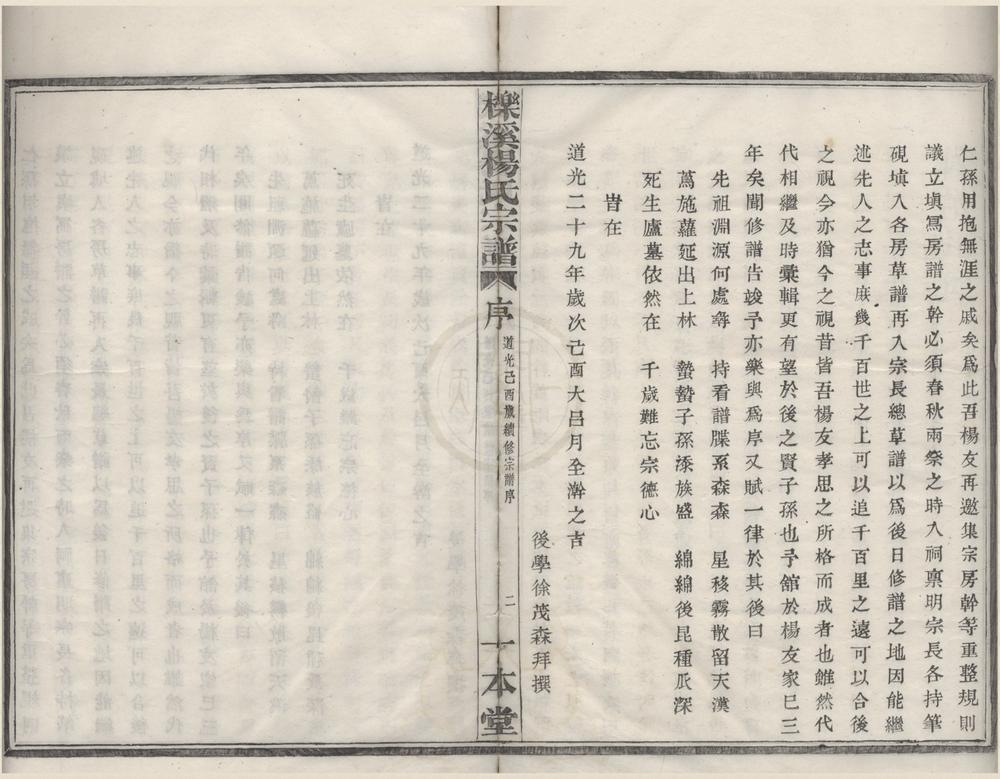 仁孫用抱無涯之戚矣爲此吾楊友再邀集宗房幹等重整規則
議立塡寫房譜之幹必須春秋兩祭之時入祠禀明宗長各持筆
硯塡入各房草譜再入宗長總草譜以爲後日修譜之地因能繼
述先人之志事庶幾千百世之上可以追千百里之遠可以合後
之視今亦猶今之視昔皆吾楊友孝思之所格而成者也雖然代
代相繼及時彚輯更有望於後之賢子孫也予舘於楊友家已三
年矣聞修譜告竣予亦樂與爲序又賦一律於其後曰
先祖淵源何處尋 持看譜牒系森森 星移霧散留天漢
蔦施蘿延出上林 蟄蟄子孫添族盛 綿綿後昆種瓜深
死生廬墓依然在 千歲難忘宗德心
旹在
道光二十九年歲次己酉大呂月全澣之吉
後學徐茂森拜撰
櫟溪楊氏宗譜 序 道光己酉歲續修宗譜序 二 一本堂